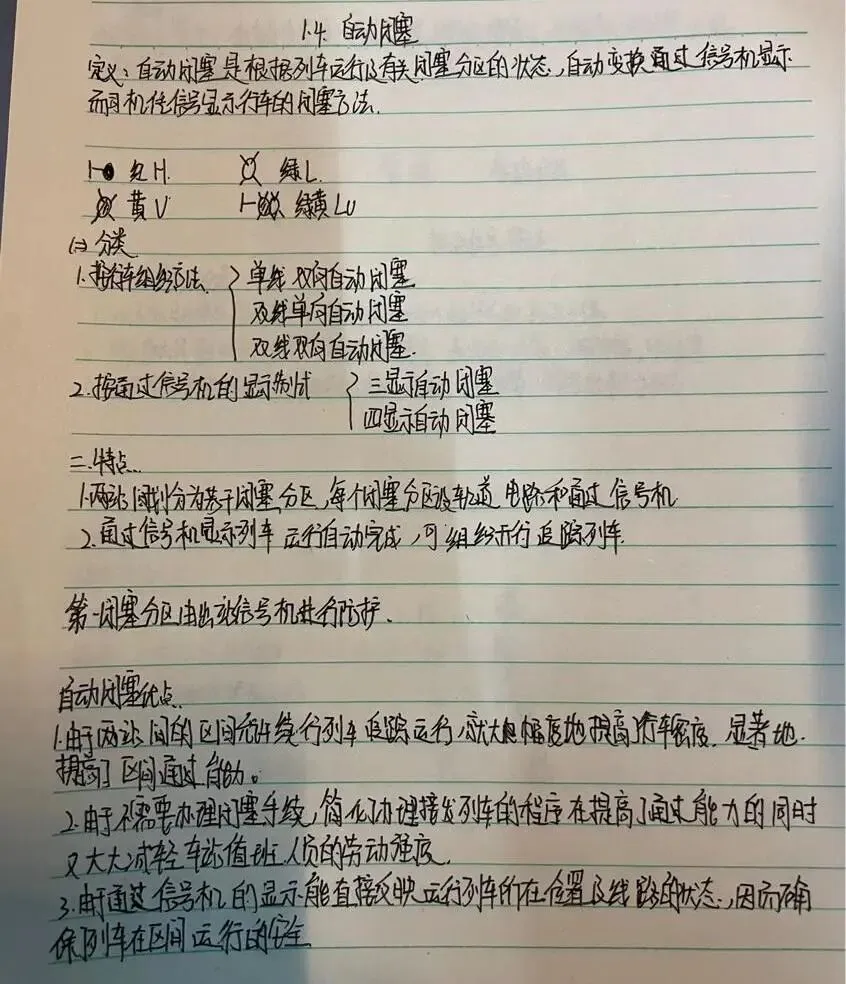 1.4. 自动闭塞
定义:自动闭塞是根据列车运行及有关闭塞分区的状态,自动变换通过信号机显示
而司机凭信号显示行车的闭塞方法.
红H. 绿L.
黄U 绿黄LU
分类
1.按行车组织方法 单线双向自动闭塞
双线单向自动闭塞
双线双向自动闭塞.
2.按通过信号机的显示制式 三显示自动闭塞
四显示自动闭塞
二.特点..
1.两站间划分为若干闭塞分区,每个闭塞分区设轨道电路和通过信号机
2.通过信号机显示列车运行自动完成,可组织开行追踪列车.
第一闭塞分区由出站信号机进行防护.
自动闭塞优点..
1.由于两站间的区间允许续行列车追踪运行,就大幅度地提高了行车密度.显著地.
提高了区间通过能力。
2.由于不需要办理闭塞手续,简化了办理接发列车的程序在提高了通过能力的同时
又大大减轻车站值班人员的劳动强度.
3.由于通过信号机的显示能直接反映运行列车所在位置及线路的状态,因而确
保列车在区间运行的安全